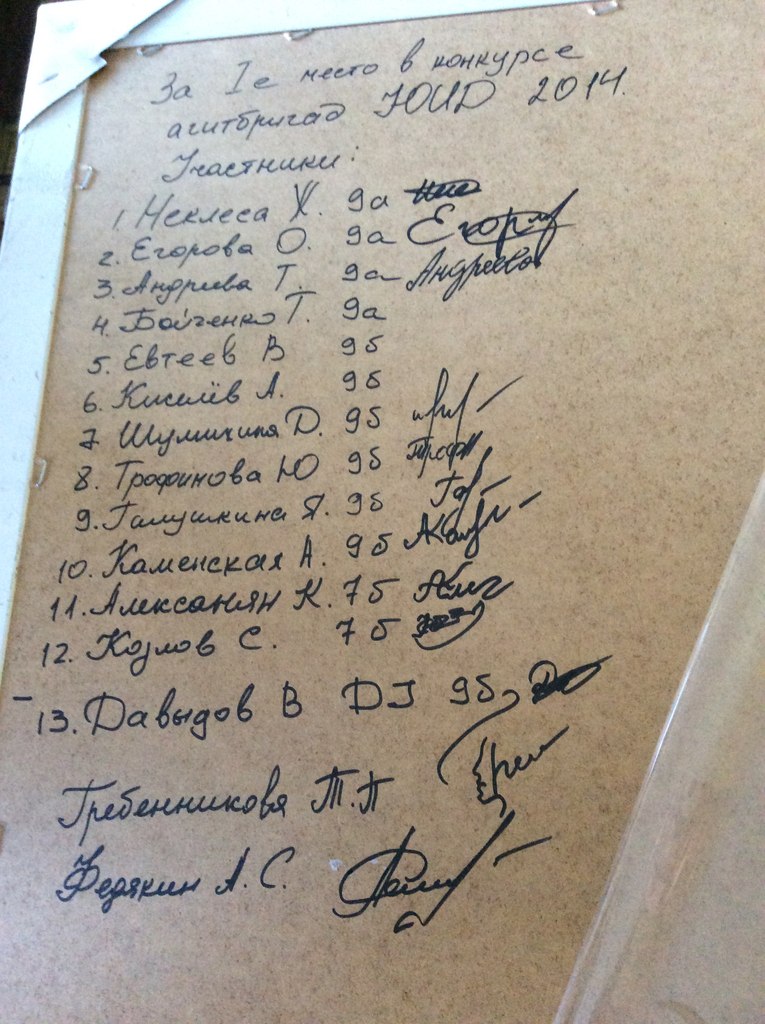 За Iе место в конкурсе
агитбригад ЮИД 2014.
Участники:
1. Неклеса Х. 9а
2. Егорова О. 9а Егор
3. Андреева Т. 9а Андреева
4. Бойченко Т. 9а
5. Евтеев В 9б
6. Киселёв А. 9б
7. Шумичина D. 9б
8. Трофимова Ю 9б Троф
9. Галушкина Я. 9б Гал
10. Каменская А. 9б АКам
11. Алексанян К. 7б
12. Козлов С. 7б
13. Давыдов В DJ 9б
Гребенникова Т.П
Федякин А.С.